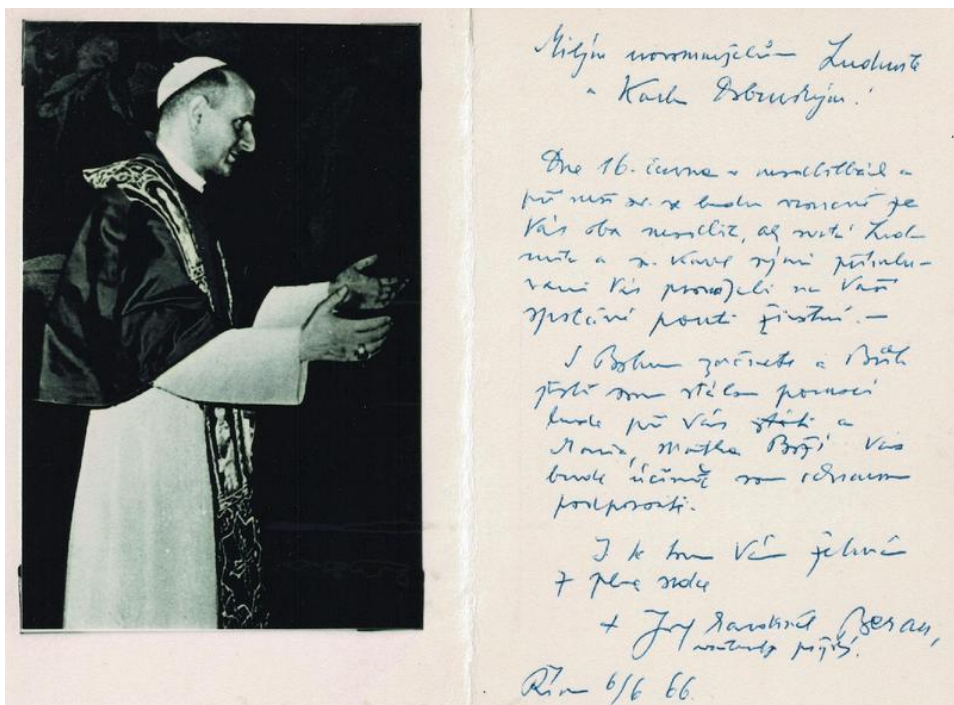 Milým novomanželům Ludmile
a Karlu
Dne 16. června v
při mši sv. budu vzpomínat že
Vás oba ať svatá Lud-
mila a sv. Karel svými přímlu-
vami Vás provázeli na Vaší
společné pouti životní. —
S Bohem začínáte a Bůh
jistě svou stálou pomocí
bude při Vás státi a
Maria, Matka Boží Vás
bude účinně svou ochranou
podporovati.
I k tomu Vám žehná
z plna srdce
+ Josef kardinál Beran,
Řím 6/6 66.